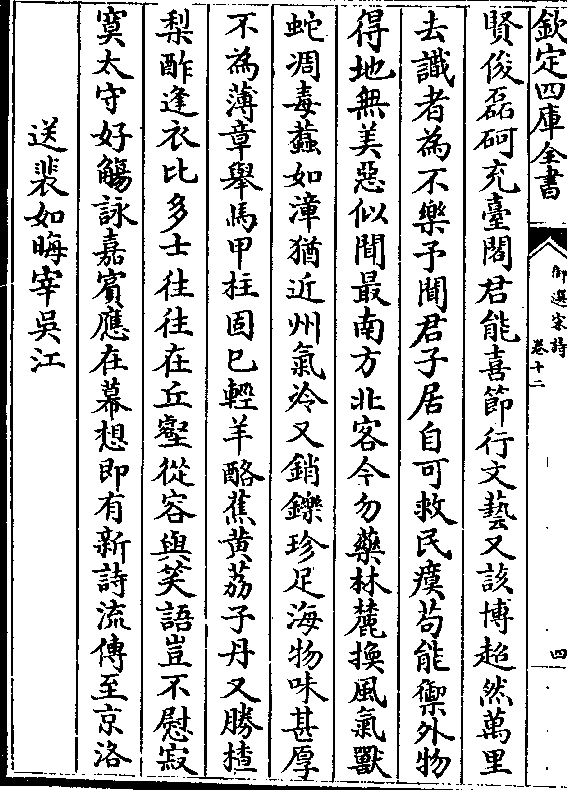 欽定四庫全書
御選宋詩
卷十二
四
賢俊磊砢充臺閣君能喜節行文藝又該博超然萬里
去識者為不樂予聞君子居自可救民瘼苟能禦外物
得地無美惡似聞最南方北客今勿藥林麓換風氣獸
蛇凋毒蠚如漳猶近州氣冷又銷鑠珍足海物味甚厚
不為薄章舉馬甲柱固已輕羊酪蕉黄荔子丹又勝楂
梨酢逢衣比多士往往在丘壑從容與笑語豈不慰寂
寞太守好觴詠嘉賓應在幕想即有新詩流傳至京洛
送裴如晦宰吳江